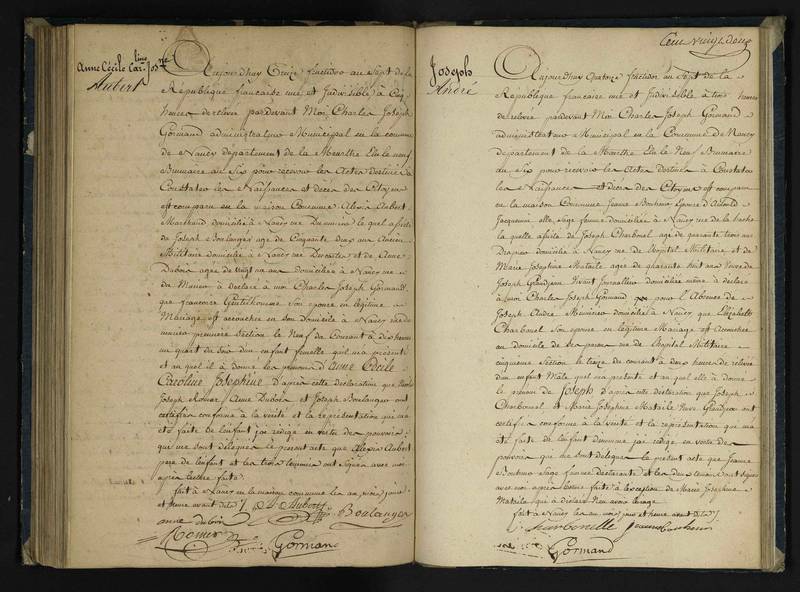 Anne Cécile Caroline Josephine
Aubert
Aujourd'huy Treize fructidor au Sept de la
République francaise une et Indivisible à Cinq
heures de relevée pardevant Moi Charles Joseph
Gormand administrateur Municipal en la commune
de Nancy département de la Meurthe Elu le neuf
Brumaire au six pour recevoir les Actes destinés à
Constater les Naissances et décès des Citoyens
est comparu en la maison Commune Alexis Aubert
Marchand domicilié à Nancy rue lequel assisté
de Joseph Boulanger agé de Cinquante deux ans Ancien
Militaire domicilié à Nancy rue et de Anne
Dubois agée de vingt un ans domiciliée à Nancy rue
du a déclaré à moi Charles Joseph Gormand
que françoise son épouse en légitime
Mariage est accouchée en son Domicile à Nancy rue de
première Section le Neuf du Courant à dix heures
un quart du soir d'un enfant femelle qu'il m'a présenté
et au quel il a donné les prénoms d'Anne Cécile
Caroline Josephine d'après cette déclaration que
Joseph Romer, Anne Dubois et Joseph Boulanger ont
certifiée conforme à la vérité et la représentation qui m'a
été faite de l'enfant j'ai rédigé en vertu des pouvoirs
qui me sont délégués le présent acte que Alexis Aubert
père de l'enfant et les trois témoins ont signés avec moi
après lecture faite
fait à Nancy en la maison commune les an, mois, jour
et heure avant dits A Aubert Boulanger
anne dubois
Romer
Gormand
Cent vingt deux
Joseph
André
Aujourd'huy Quatorze fructidor au Sept de la
République francaise une et Indivisible à trois heures
de relevée pardevant Moi Charles Joseph Gormand
administrateur Municipal en la Commune de Nancy
département de la Meurthe Elu le Neuf Brumaire
du six pour recevoir les Actes destinés à Constater
les Naissances et décès des Citoyens est comparu
en la maison Commune Jeanne Épouse d'
Jacquemin elle, sage femme domiciliée à Nancy rue de la
laquelle assistée de Joseph Charbonel agé de quarante trois ans
Drapier domicilié à Nancy rue de l'hopital Militaire et de
Marie Josephine Mataile agée de quarante huit ans Veuve de
Joseph Vivant Journalier domiciliée même a déclaré
à moi Charles Joseph Gormand pour l'Absence de
Joseph André Menuisier domicilié à Nancy que Elizabeth
Charbonel son épouse en légitime Mariage est accouchée
au domicile de rue de l'hopital Militaire
cinquieme Section le treize du courant à deux heures de relevée
d'un enfant Mâle qu'elle m'a présenté et au quel elle a donné
le prénom de Joseph d'après cette déclaration que Joseph
Charbonel, et Marie Josephine Mataile Veuve ont
certifiée conforme à la vérité et la représentation qui m'a
été faite de l'enfant dénommé j'ai rédigé en vertu des
pouvoirs qui me sont délégués le présent acte que Jeanne
Sage femme declarante et les deux témoins ont signés
avec moi après lecture faite à l'exception de Marie Josephine
Mataile qui a déclaré n'en avoir l'usage
fait à Nancy les an mois, jour et heure avant dits
Charbonelle
Gormand